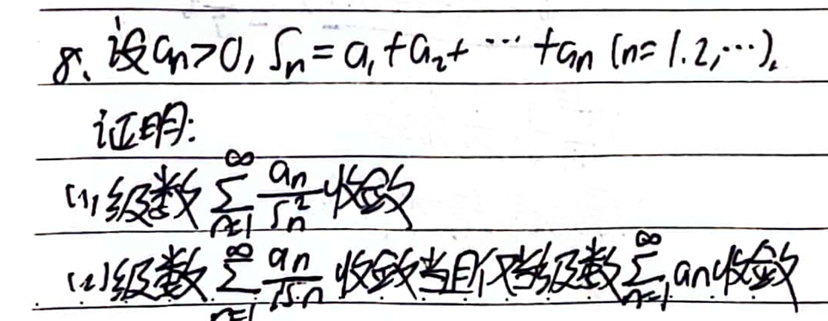 8、设aₙ>0, Sₙ=a₁+a₂+…+aₙ (n=1.2,…).
证明:
(1)级数 ∑_{n=1}^{∞} aₙ/Sₙ² 收敛
(2)级数 ∑_{n=1}^{∞} aₙ/√Sₙ 收敛当且仅当级数 ∑_{n=1}^{∞} aₙ 收敛